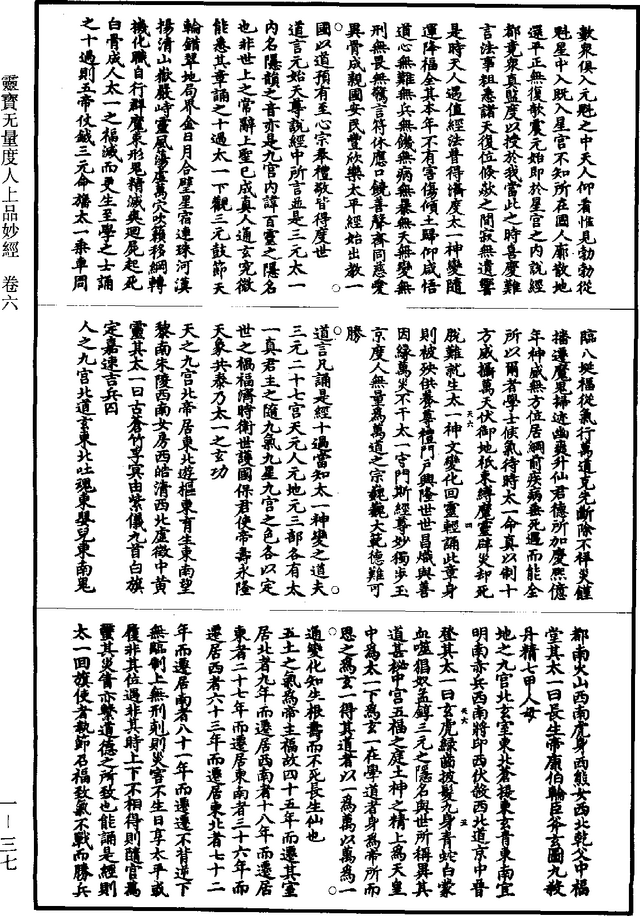 數眾俱入元魁之中天人仰看惟見勃勃從
魁星中入既入星宮不知所在國人廓散地
還平正無復欹震元始即於星宮之內說經
都竟眾真監度以授於我當此之時喜慶難
言法事粗悉諸天復位倏欻之間寂無遺響
是時天人遇值經法普得濟度太一神變隨
運降福全其本年不有害傷傾土歸仰咸悟
道心無難無兵無饑無病無暴無夭無變無
刑無畏無驚言符休應口饒善聲齊同慈愛
異骨成親國安民豐欣樂太平經始出教一
國以道預有至心宗奉禮敬皆得度世
道言元始天尊說經中所言並是三元太一
內名隱韻之音亦是九宮內諱百靈之隱名
也非世上之常辭上聖已成真人通玄究微
能悉其章誦之十過太一下觀三元鼓節天
輪錯翠地局界金日月合璧星宿連珠河漢
揚清山嶽嚴峙靈風蕩虛萬穴吹籟移綱轉
機化職自行群魔束形鬼精滅爽迴屍起死
白骨成人太一之福滅而更生至學之士誦
之十過則五帝仗鉞三元命旛太一乘車周
臨八埏福從氣行萬道克先斷除不祥災鏟
播遷魔鬼掃迹幽爽升仙君德所加慶熙億
年神威無方位居綱前疾病無死遇而能全
所以爾者學士候氣待時太一命真以制十
方威攝萬天伏御地祇束縛魔靈辟災却死
脫難就生太一神文變化回靈輕誦此章身
則被殃供養尊禮門戶興隆世世昌熾與善
因緣萬災不干太一守門斯經尊妙獨步玉
京度人無量為萬道之宗巍巍大範德難可
勝
道言凡誦是經十過當知太一神變之道夫
三元二十七宮天元人元地元三部各有太
一真君主之隨九氣九星九宮之色各以定
世之禍福濟時衛世護國保君使帝壽永隆
天象共泰乃太一之玄功
天之九宮北帝居東北遊樞東育生東南望
黎南朱陵西南女房西皓清西北虛微中黃
靈其太一曰古蒼竹孚冥由紫儀九首白旗
定嘉速吉兵囚
人之九宮北道玄東北吐魂東嬰兒東南鬼
都南火山西南虎身西熊女西北乾父中福
堂其太一曰長生帝康伯輪臣斧玄圖九教
丹精七甲人毋
地之九宮北玄室東北蒼提東玄青東南宜
明南亦兵西南將印西伏骸西北道京中晉
登其太一曰玄虎綠齒披髮九身青蛇白蒙
血噬猖奴孟錞三元之隱名與世所稱異其
道甚祕中宮五福之庭土神之精上為天皇
中為太一下為玄一在學道者身為帝所而
思之為玄一得其道者以一為萬以萬為一
通變化知生根壽而不死長生仙也
五土之氣為帝主福故四十五年而遷其室
居北者九年而遷居西南者十八年而遷居
東者二十七年而遷居東南者三十六年而
遷居西者六十三年而遷居東北者七十二
年而遷居南者八十一年而遷遷不背逆下
無臨制上無刑剋則災害不生日享太平或
履非其位遇非其時上下不相得則隨官萬
靈其災眚亦繫道德之所致也能誦是經則
太一回旗使者執節召福致氣不戰而勝兵
靈寶无量度人上品妙經 卷六
一—三七